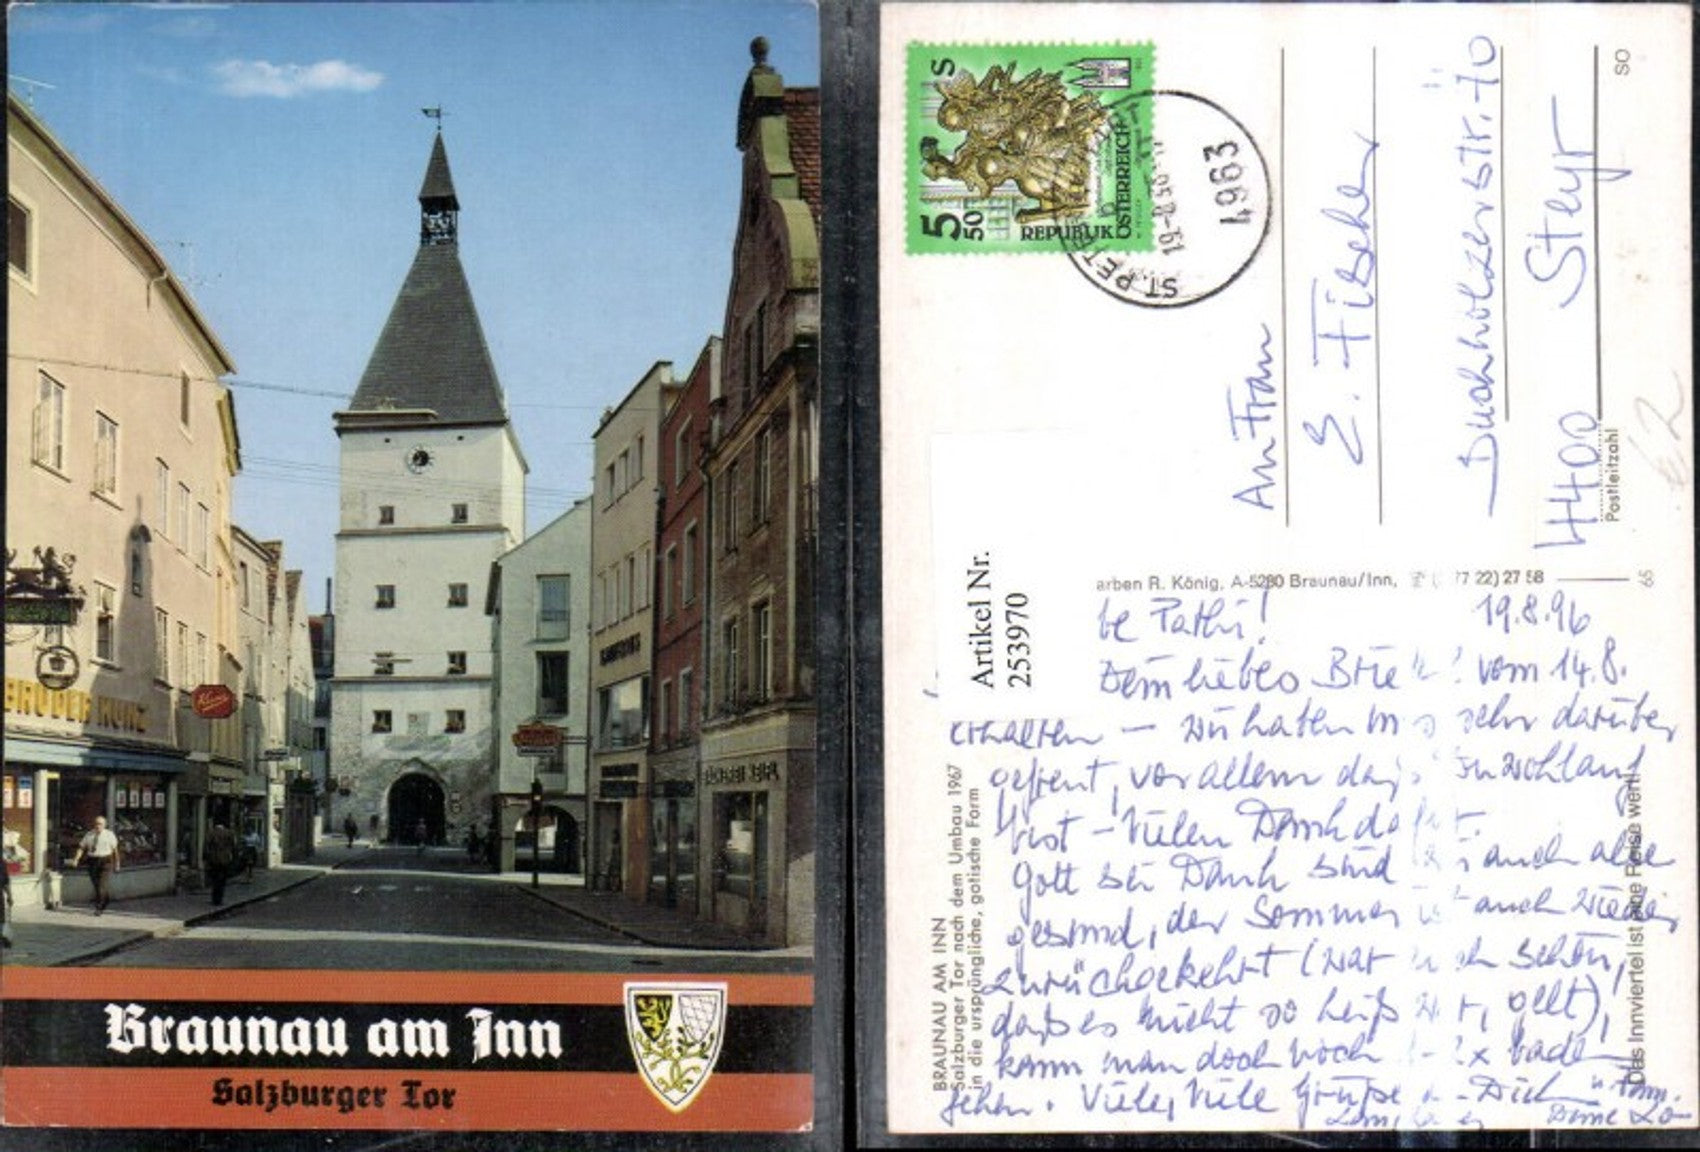 BRÜDER KUNZ
BÄCKEREI KEIPL
Braunau am Inn
Salzburger Tor
5 50 S
REPUBLIK ÖSTERREICH
ST. PET
19.-8.96
4963
SO
An Frau
E. Fischer
Duchholzerstr. 70
4400 Steyr
Postleitzahl
Artikel Nr.
253970
arben R. König, A-5280 Braunau/Inn, 77 22) 27 58
65
BRAUNAU AM INN
Salzburger Tor nach dem Umbau 1967
in die ursprüngliche, gotische Form
Das Innviertel ist eine Reise wert!
be Pathi! 19.8.96
Dein liebes Brie vom 14.8.
erhalten – wir haben uns sehr darüber
gefreut, vor allem daß Du wohlauf
bist – Vielen Dank dafür.
Gott sei Dank sind wir auch alle
gesund, der Sommer ist auch wieder
zurückgekehrt (war schön,
daß es nicht so heiß war, gellt),
kann man doch noch 1-2x baden
gehen. Viele, viele Grüße an Dich
Deine